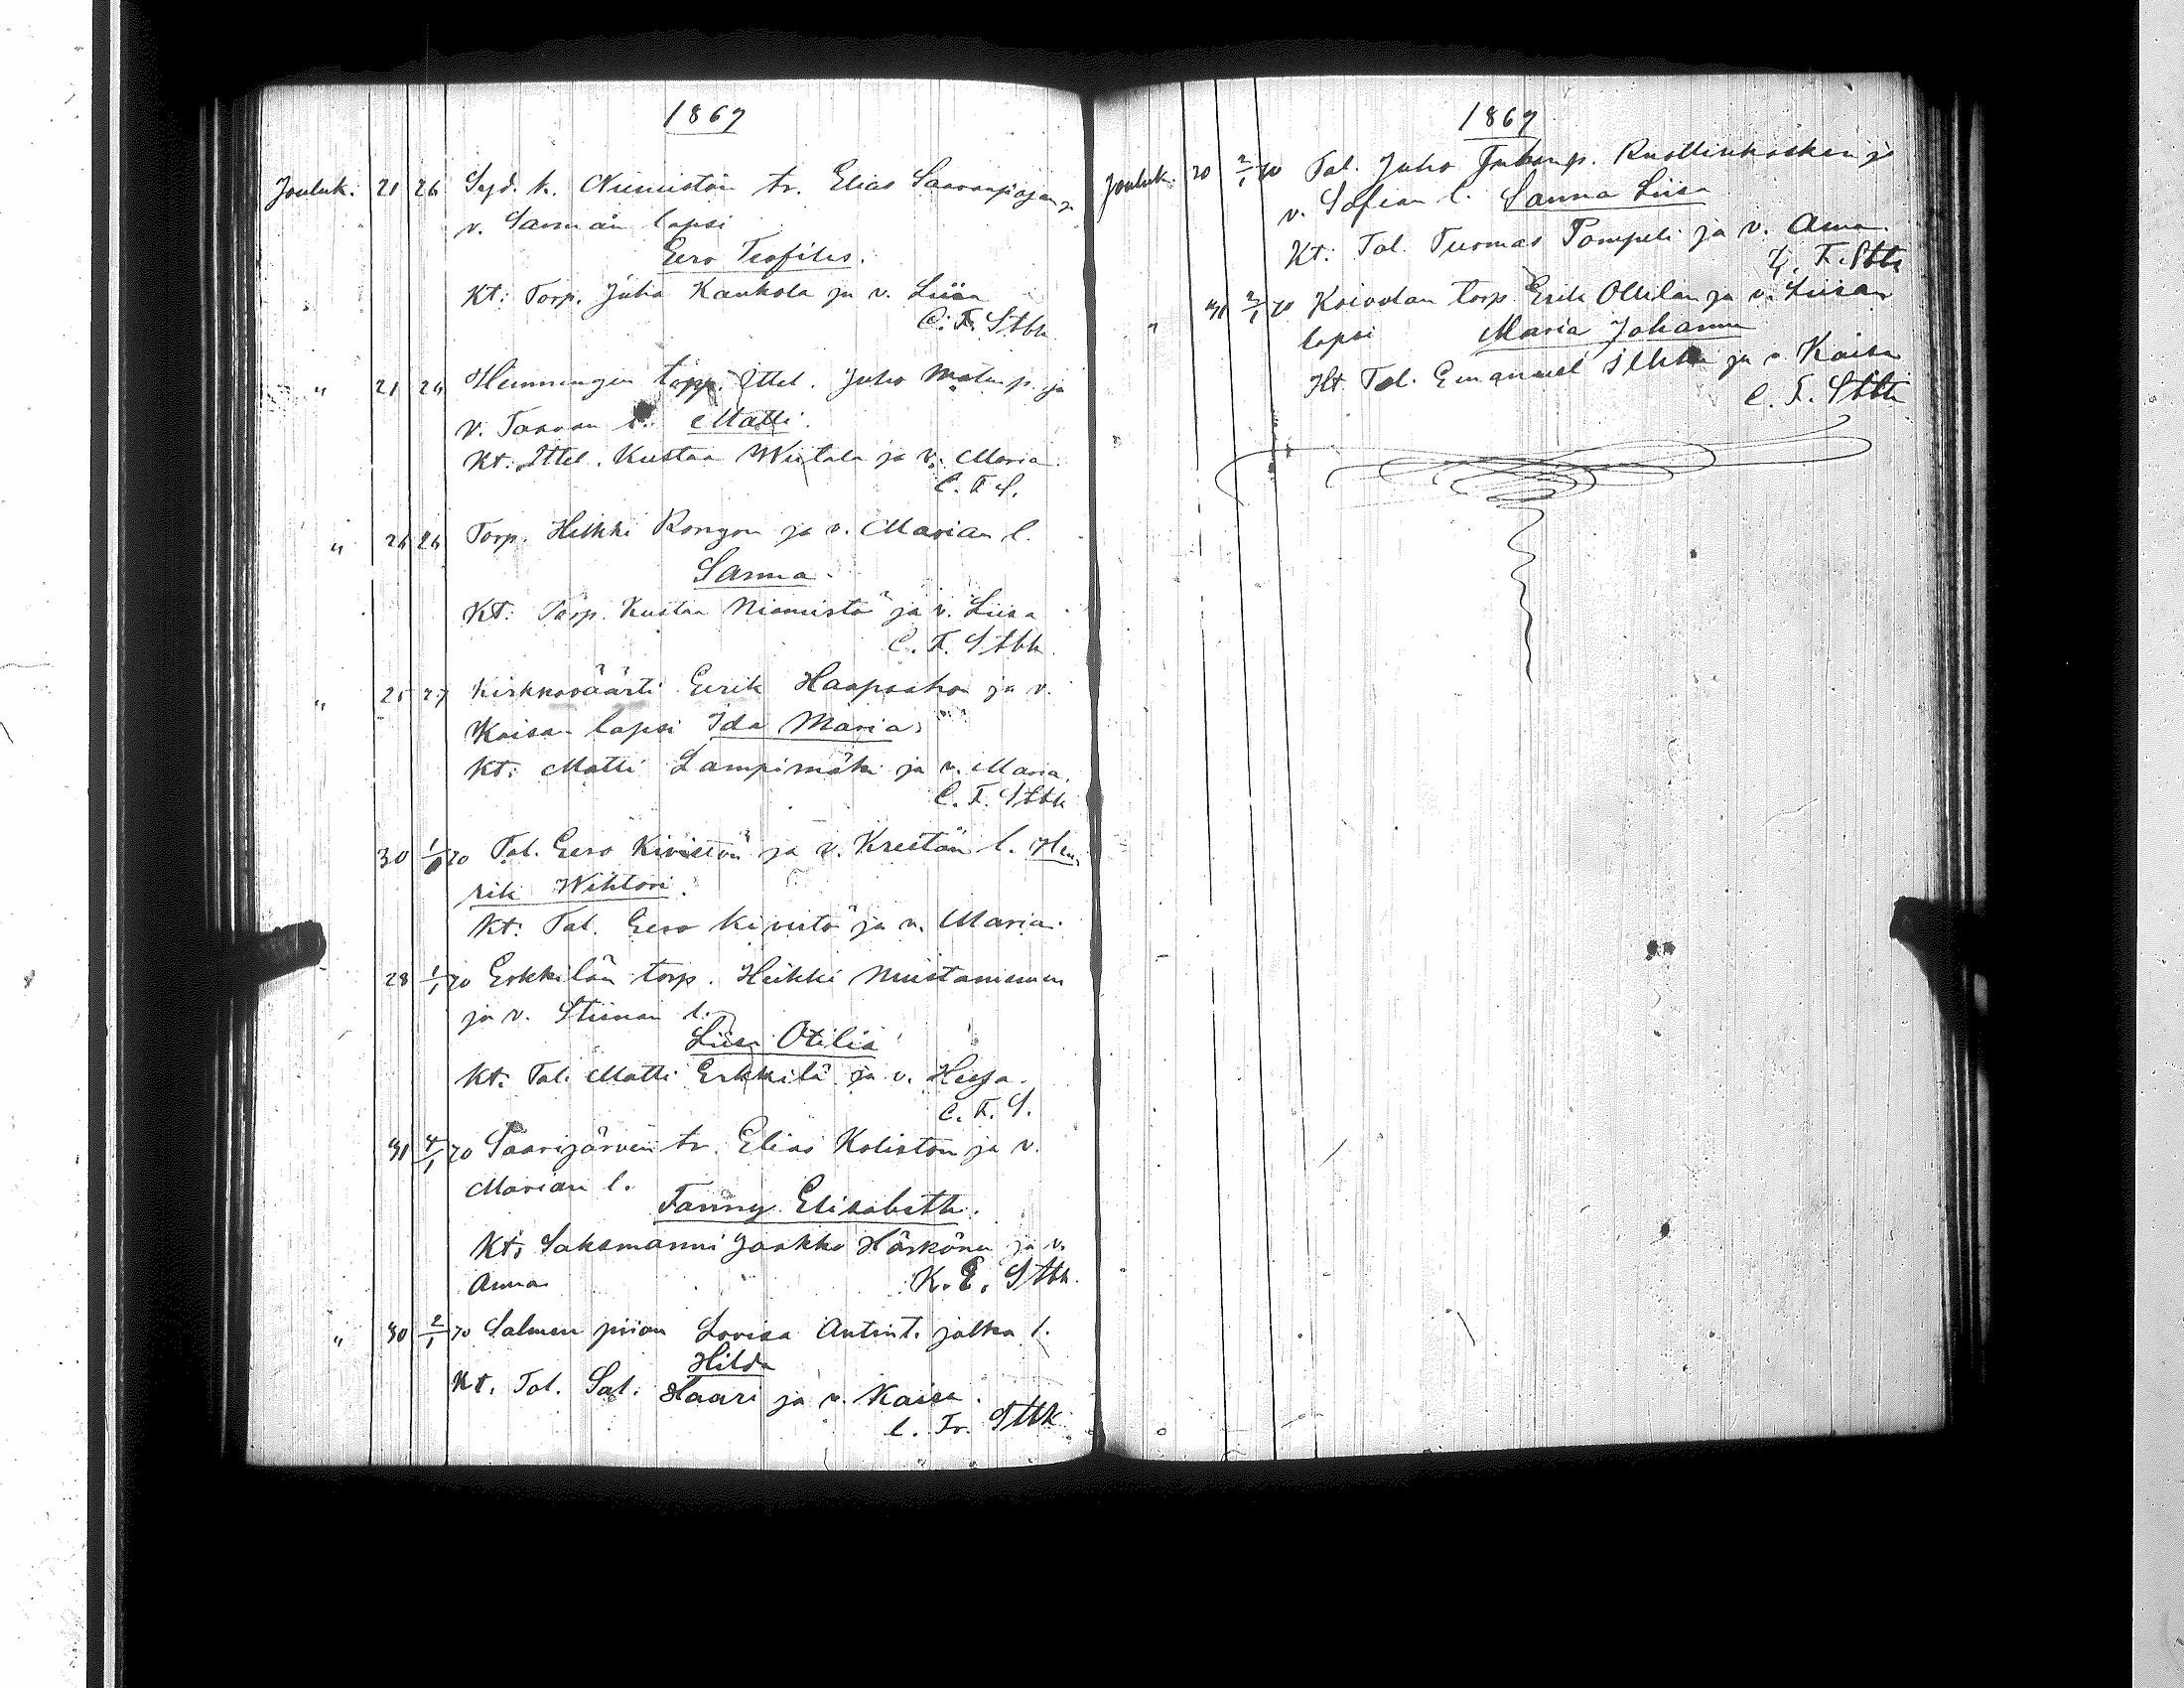 1869
Jouluk. 21 26 Syd. k. Niemistön tr. Elias Saarenpään ja
v. Sannan lapsi
Eero Teofilus.
Kt: Torp. Juha Kaukola ja v. Liisa
C. F. Stbk
" 21 26 Hemmingin Ittel. Juho Matinp. ja
v. l. Matti.
Kt: Ittel. Kustaa Wiitala ja v. Maria.
C. F. S.
" 24 26 Torp. Heikki ja v. Marian l.
Sanna.
Kt: Torp. Kustaa Niemistö ja v. Liisa
C. F. Stbk.
" 25 27 Kirkkoväärti Eerik Haapaahon ja v.
Kaisan lapsi Ida Maria.
Kt: Matti Lampimäki ja v. Maria.
C. F. Stbk
30 1/1 70 Tal. Eero Kivistön ja v. Kreetan l. Hen-
rik Wihtori.
Kt: Tal. Eero Kivistö ja v. Maria.
28 1/1 70 Erkkilän torp. Heikki Mustaniemen
ja v. Stiinan l.
Liisa Otilia
Kt: Tal. Matti Erkkilä ja v.
C. F. S.
31 4/1 70 Saarijärven tr. Elias Koliston ja v.
Marian l.
Fanny Elisabeth.
Kt: Saksmanni Jaakko Härkönen ja v.
Anna
K. E. Stbk.
" 30 2/1 70 Salmen piian Lovisa Antint. jalka l.
Hilda
Kt. Tal. Sal. Haari ja v. Kaisa.
C. Fr. Stbk
1869
Jouluk. 20 2/1 70 Tal. Juho Juhanp. Ruottinkosken ja
v. Sofian l. Sanna Liisa
Kt: Tal. Tuomas Pompeli ja v. Anna.
C. F. Stbk
" 31 2/1 70 Koivolan torp. Erik Ollilan ja v. Liisan
lapsi Maria Johanna
Kt. Tal. Emanuel Ilkka ja v. Kaisa
C. F. Stbk